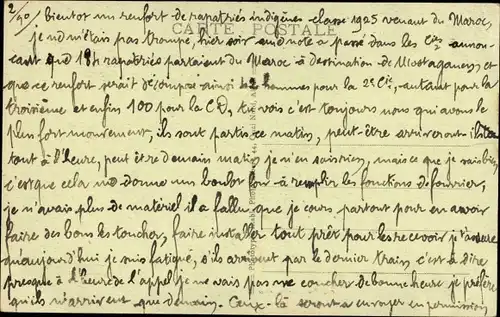 2/40, bientôt un renfort de rapatriés indigènes classe 1925 venant du Maroc,
CARTE POSTALE
je ne m'étais pas trompé, hier soir une note a passé dans les Cies annon-
cant que 184 rapatriés partaient du Maroc à destination de Mostaganem, et
que ce renfort serait décomposé ainsi 42 hommes pour la 2e Cie, autant pour la
troisième et enfin 100 pour la CD, tu vois c'est toujours nous qui avons le
plus fort mouvement, ils sont partis ce matin, peut-être arriveront-ils
tout à l'heure, peut être demain matin je n'en sais rien, mais ce que je sais bien
c'est que cela me donne un boulot fou à remplir les fonctions de fourrier,
je n'avais plus de matériel il a fallu que je cours partout pour en avoir
faire des bons les toucher, faire installer tout prêt pour les recevoir je t'assure
qu'aujourd'hui je suis fatigué, s'ils arrivent par le dernier train c'est à dire
presque à l'heure de l'appel je ne vais pas me coucher de bonne heure je préfère
qu'ils n'arrivent que demain. Ceux-là seront à envoyer en permission